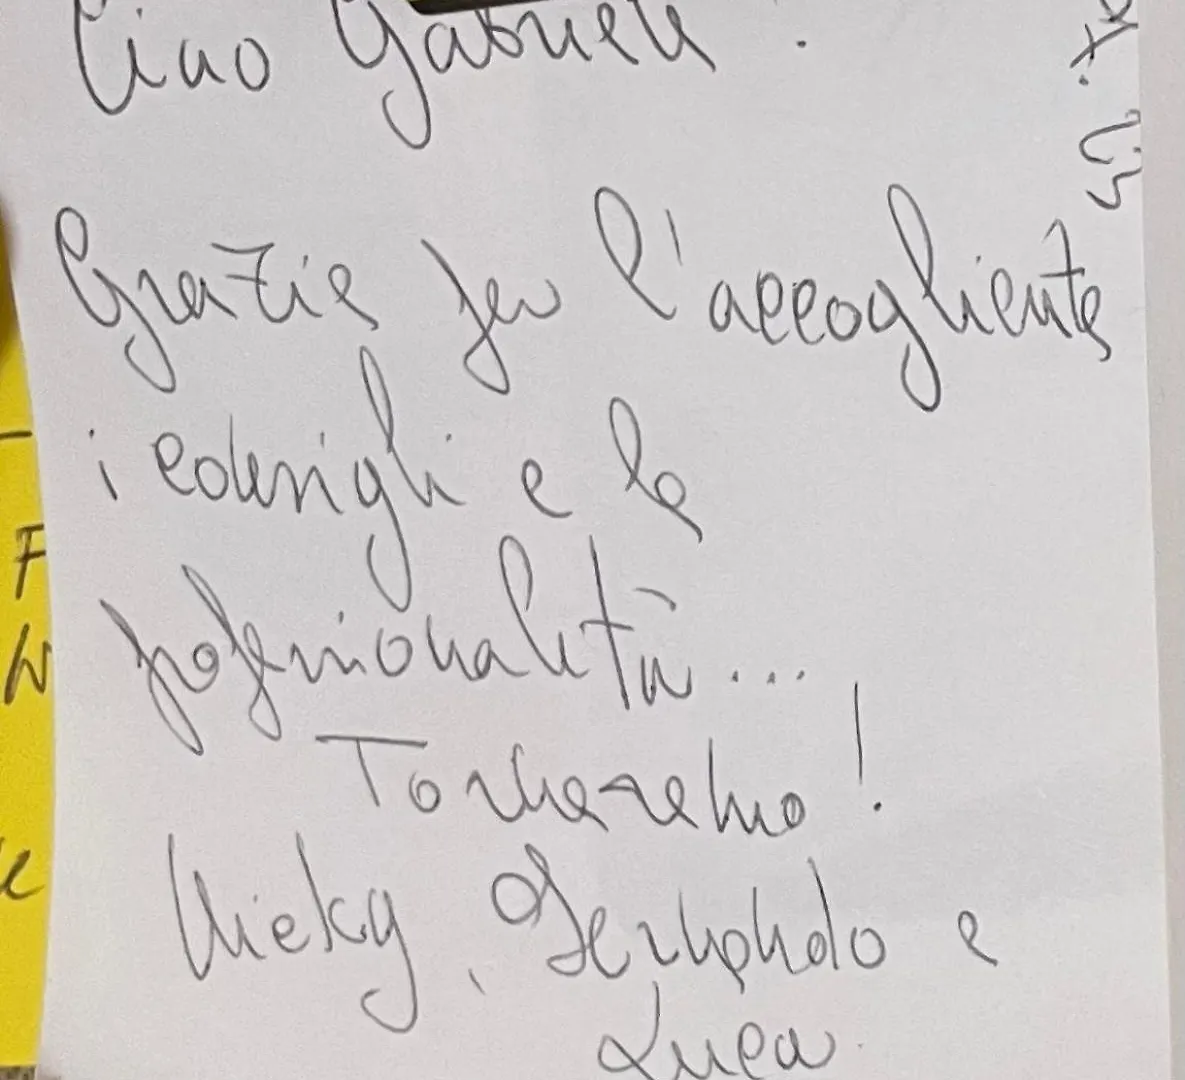 Ciao Gabriele.
Grazie per l'accogliente
i consigli e la
professionalità...
Torneremo!
Micky, Fernando e
Luca
F